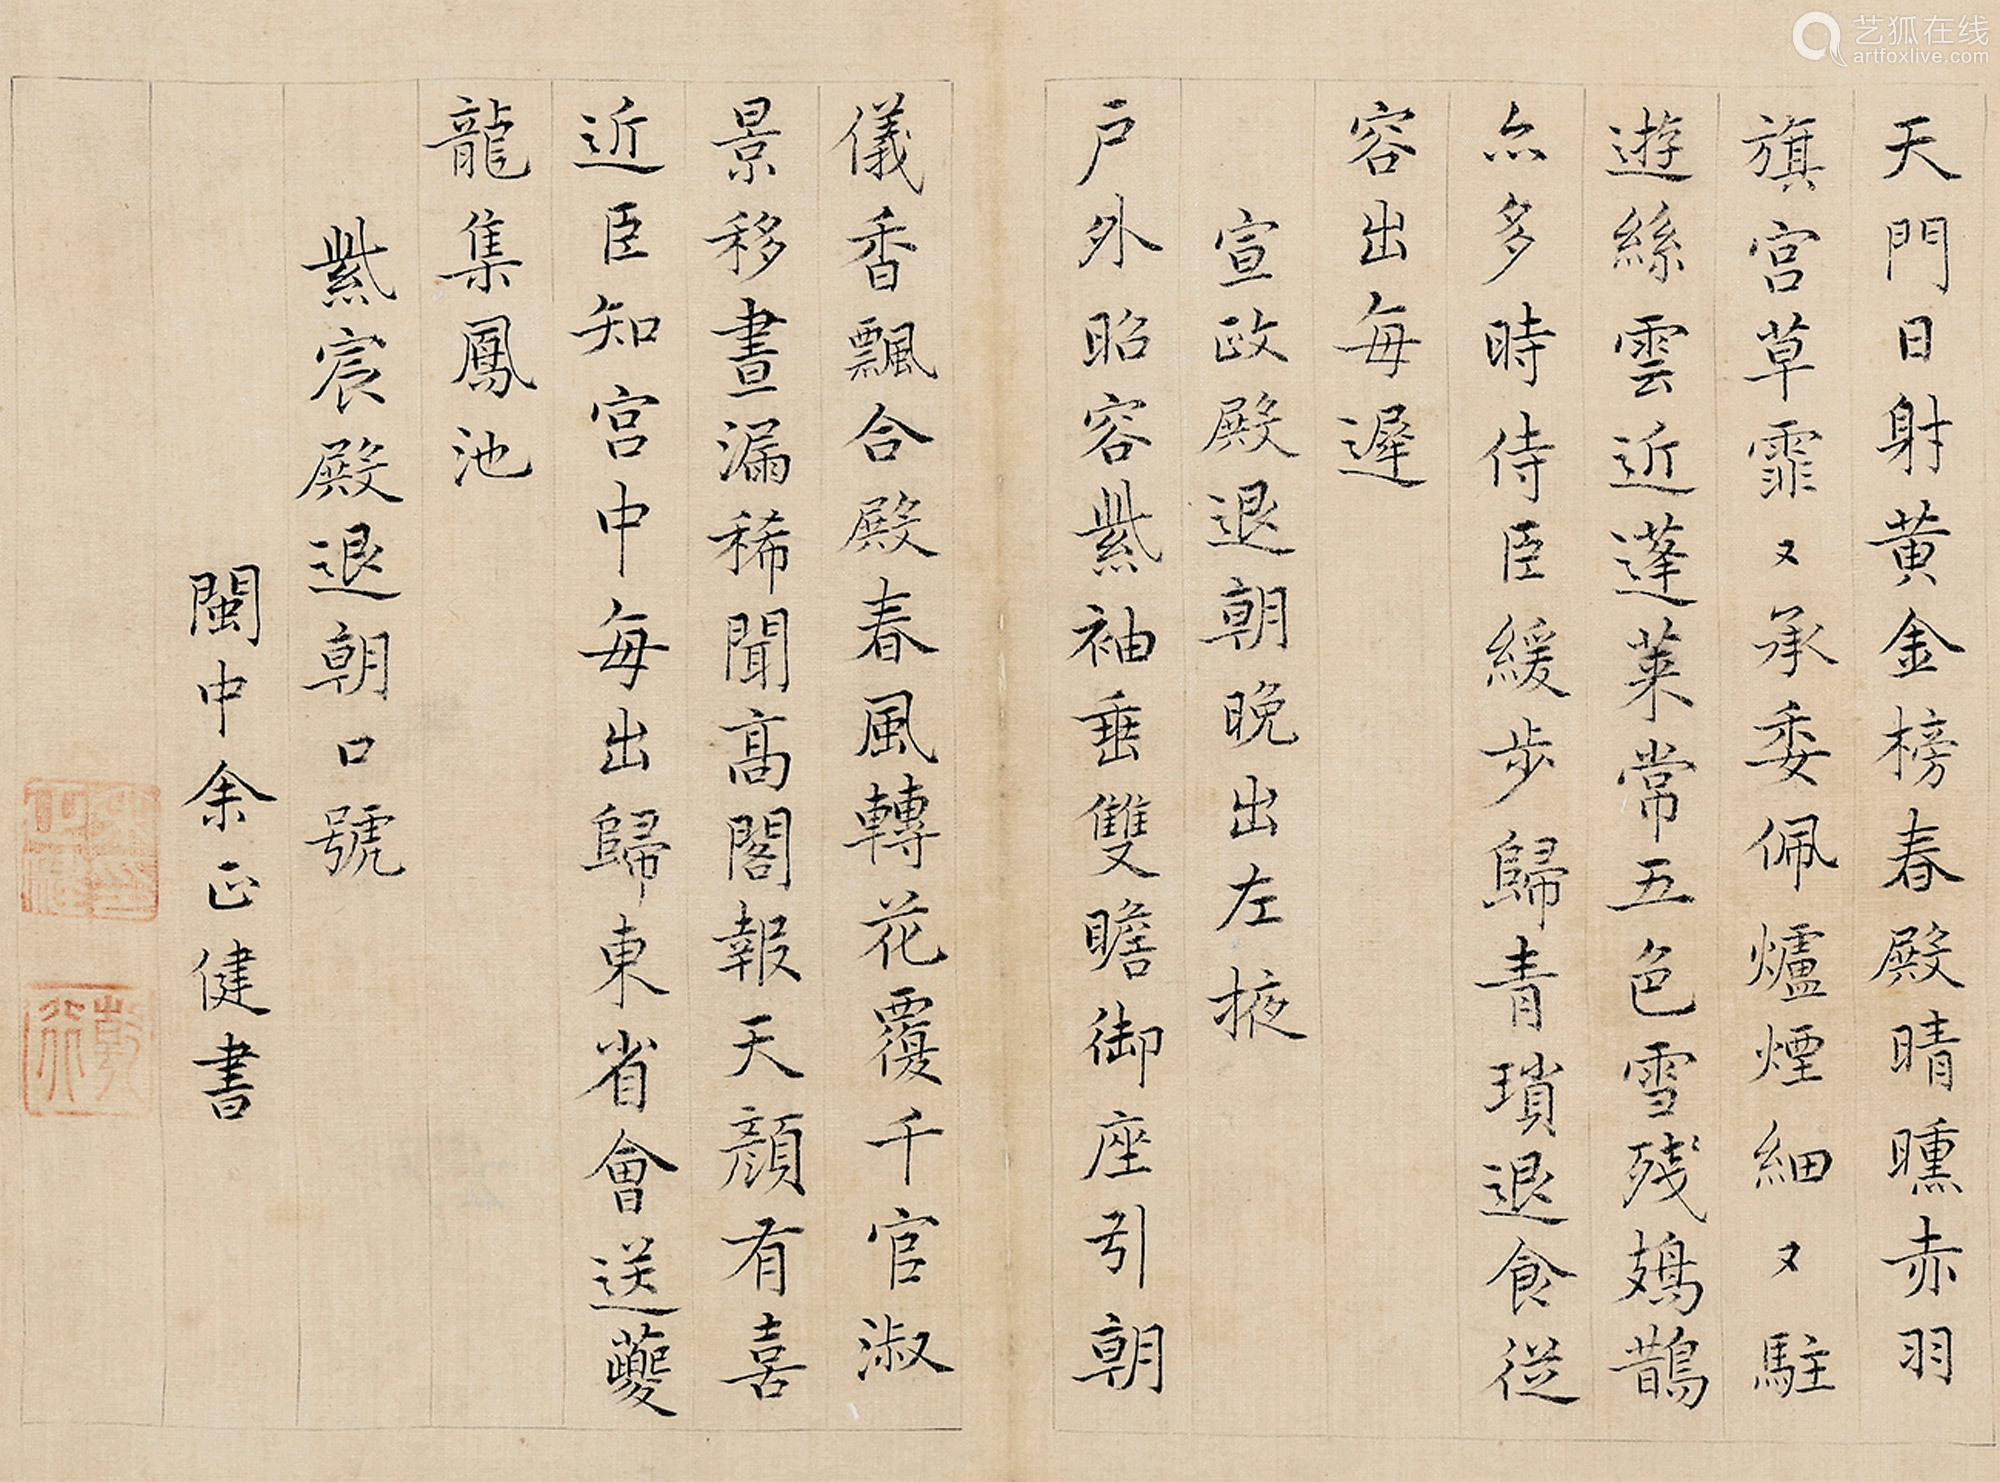 天門日射黄金榜春殿晴曛赤羽
旗宮草霏〻承委佩爐煙細〻駐
遊絲雲近蓬莱常五色雪残鳷鵲
亦多時侍臣緩步歸青瑣退食從
容出每遲
宣政殿退朝晚出左掖
戶外昭容紫袖垂雙瞻御座引朝
儀香飄合殿春風轉花覆千官淑
景移晝漏稀聞髙閣報天顔有喜
近臣知宮中每出歸東省會送夔
龍集鳳池
紫宸殿退朝口號
閩中余正健書
艺狐在线
artfoxlive.com